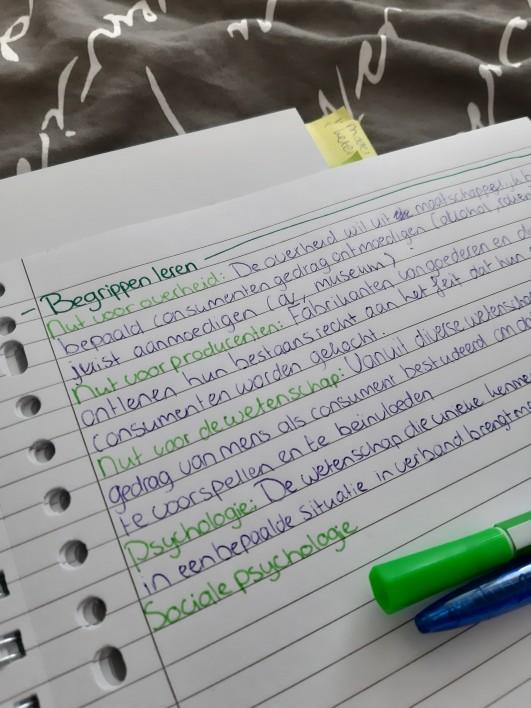 - Begrippen leren
Nut voor overheid: De overheid wil uit de maatschappel.
bepaald consumentengedrag ontmoedigen (alcohol,
juist aanmoedigen (museum).
Nut voor producenten: Fabrikanten van goederen en
ontlenen hun bestaansrecht aan het feit dat hun
consumenten worden gekocht.
Nut voor de wetenschap: Vanuit diverse wetensch
gedrag van mens als consument bestudeerd om
te voorspellen en te beinvloeden
Psychologie: De wetenschap die unieke kenme
in een bepaalde situatie in verband brengt
Sociale psychologie